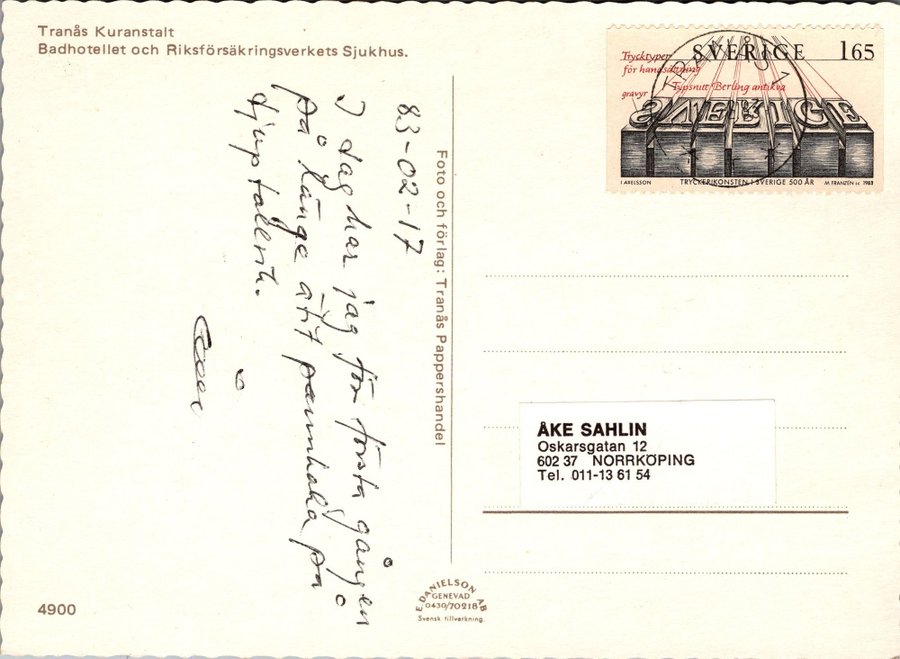 Tranås Kuranstalt
Badhotellet och Riksförsäkringsverkets Sjukhus.
83-02-17
I dag har jag för första gången
på länge ätit pannkaka på
djup tallrik.
Foto och förlag: Tranås Pappershandel
SVERIGE 165
Trycktyper
för handsättning
Typsnitt Berling antikva
gravyr
SVERIGE
I AXELSSON TRYCKERIKONSTEN I SVERIGE 500 ÅR M FRANZÉN sc 1983
TRANÅS 1
ÅKE SAHLIN
Oskarsgatan 12
602 37 NORRKÖPING
Tel. 011-13 61 54
4900
E. DANIELSON AB
GENEVAD
0430/70218
Svensk tillverkning.